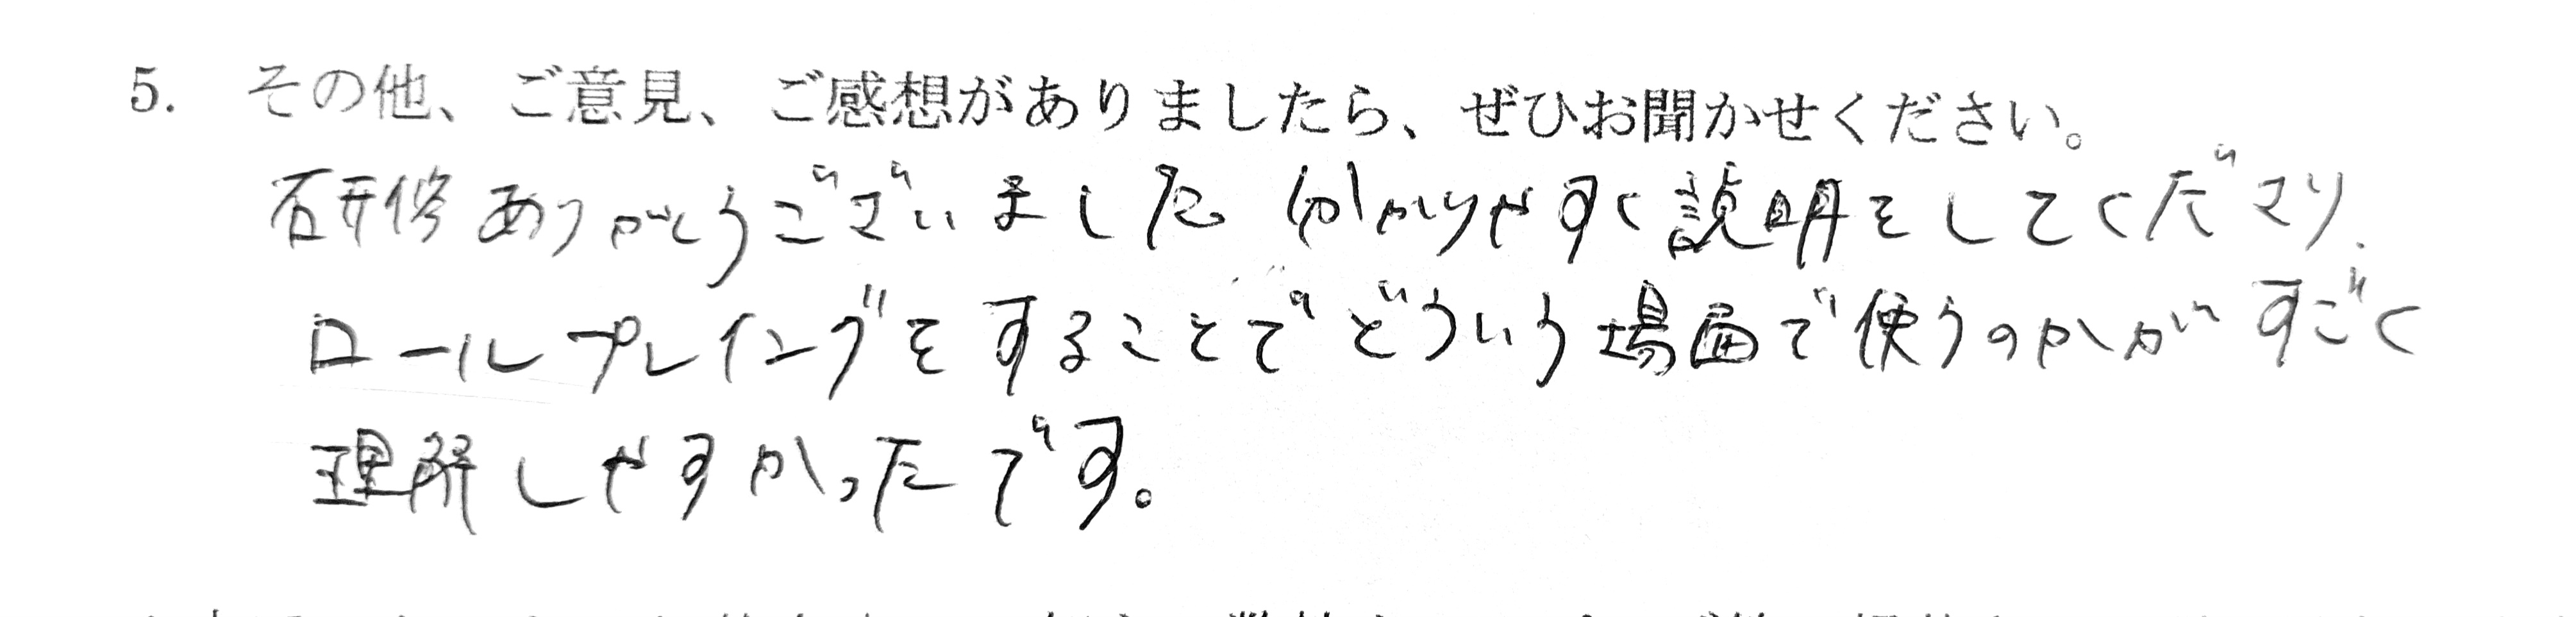 5. その他、ご意見、ご感想がありましたら、ぜひお聞かせください。
研修ありがとうございました。分かりやすく説明をしてくださり、
ロールプレイングをすることでどういう場面で使うのかがすごく
理解しやすかったです。